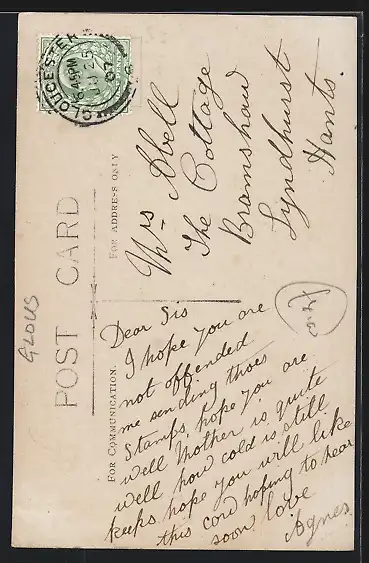 GLOUCESTER
6.45PM
07
Mrs Abell
The Cottage
Bramshaw
Lyndhurst
Hants.
POST CARD
FOR ADDRESS ONLY
FOR COMMUNICATION.
GLOUS
Dear Sis
I hope you are
not offended
me sending thoes
stamps, hope you are
well Mother is quite
well how cold is still
keeps hope you will like
this card hoping to hear
soon love
Agnes